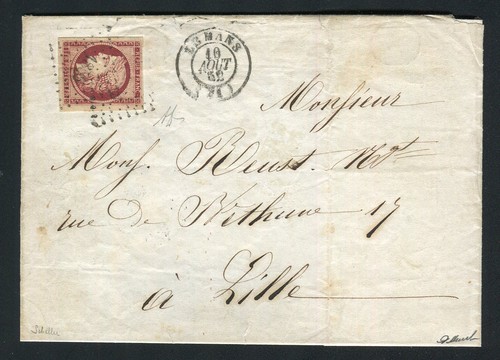 LE MANS
10
AOUT
52
(71)
Monsieur
Mons. Reust. Nt.
rue de Béthune 17
à Lille